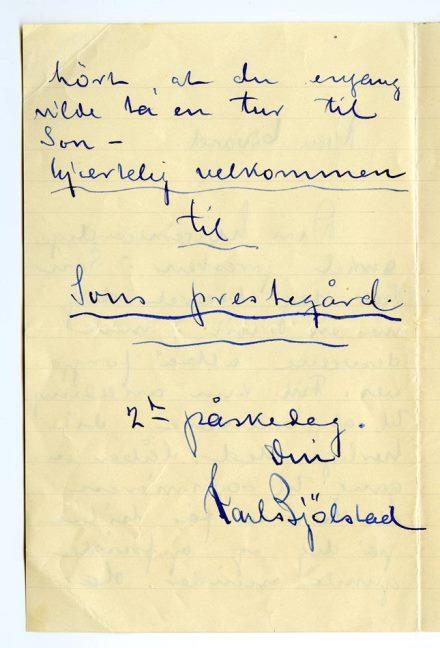 hört at du engang
vilde ta en tur til
Son -
hjertelig velkommen
til
Sons prestegård.
2n påskedag.
Din
Karl Bjölstad